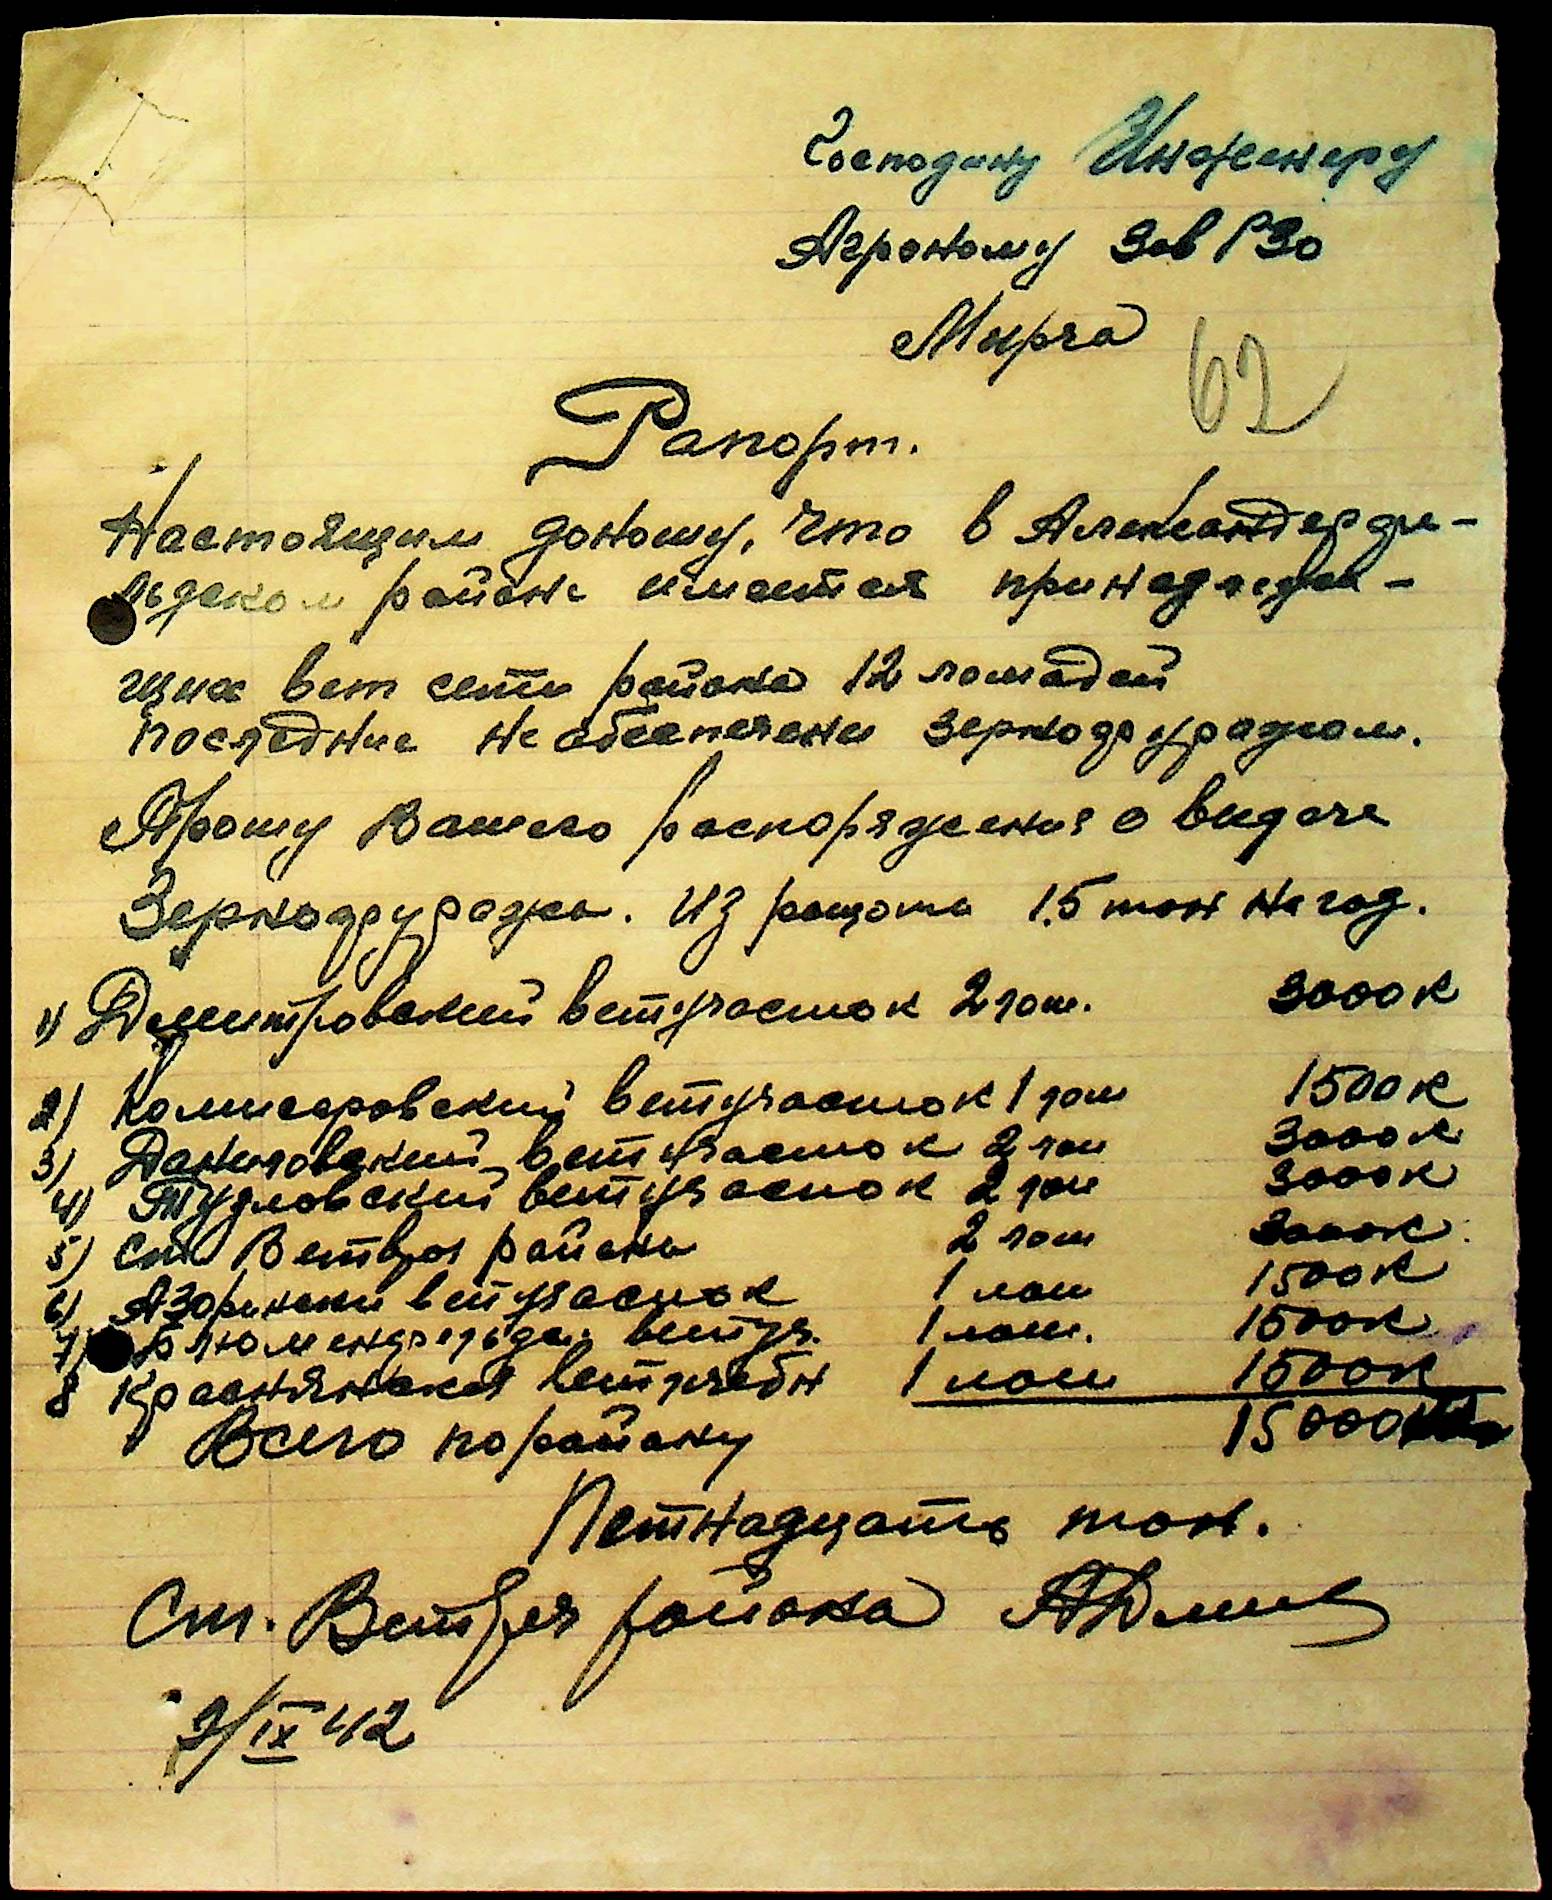 Господину Инженеру
Агроному Зав РЗО
Мирча
62
Рапорт.
Настоящим доношу, что в Александерфе-
льдском районе имеется принадлежа-
щих вет сети района 12 лошадей
последние не обеспечены зернофуражом.
Прошу Вашего распоряжения о выдаче
Зернофуража. Из ращота 1.5 тон на год.
1) Дмитровский ветучасток 2 лош. 3000 к
2) Комисаровский ветучасток 1 лош 1500 к
3) Даниловский ветучасток 2 лош 3000 к
4) ветучасток 2 лош 3000 к
5) Ст. Ветвр района 2 лош 3000 к
6) ветучасток 1 лош 1500 к
7) Блюменфельдс. ветуч. 1 лош. 1500 к
8 Краснянская ветлечебн 1 лош 1500 к
Всего по району 15000
Петнадцать тон.
Ст. Ветвр района
2/IX 42